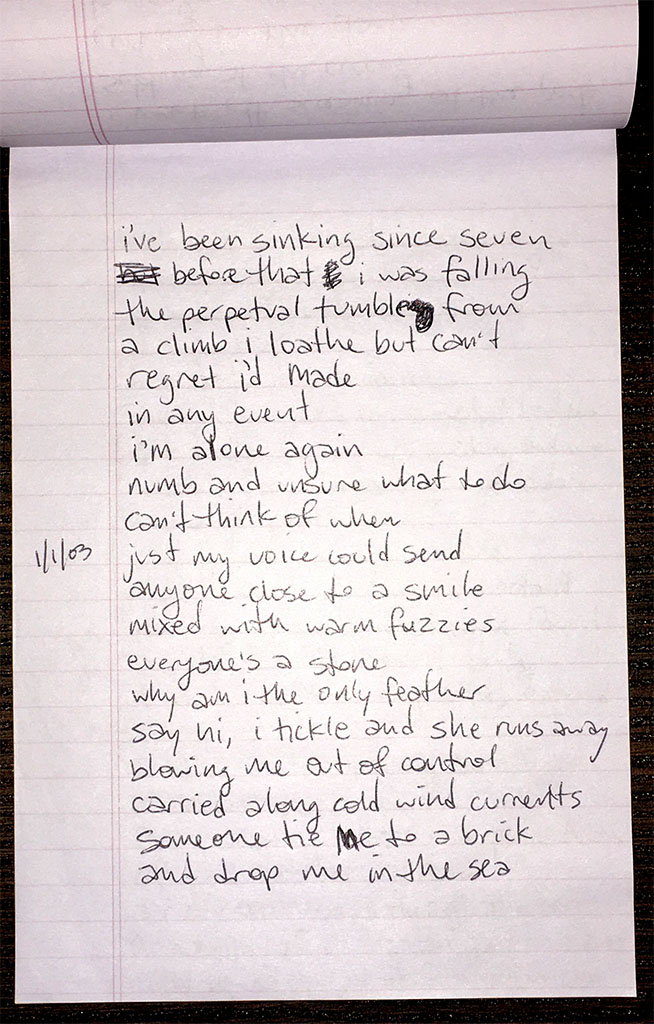 i've been sinking since seven
before that i was falling
the perpetual tumble from
a climb i loathe but can't
regret i'd made
in any event
i'm alone again
numb and unsure what to do
can't think of when
1/1/03 just my voice could send
anyone close to a smile
mixed with warm fuzzies
everyone's a stone
why am i the only feather
say hi, i tickle and she runs away
blowing me out of control
carried along cold wind currents
someone tie me to a brick
and drop me in the sea